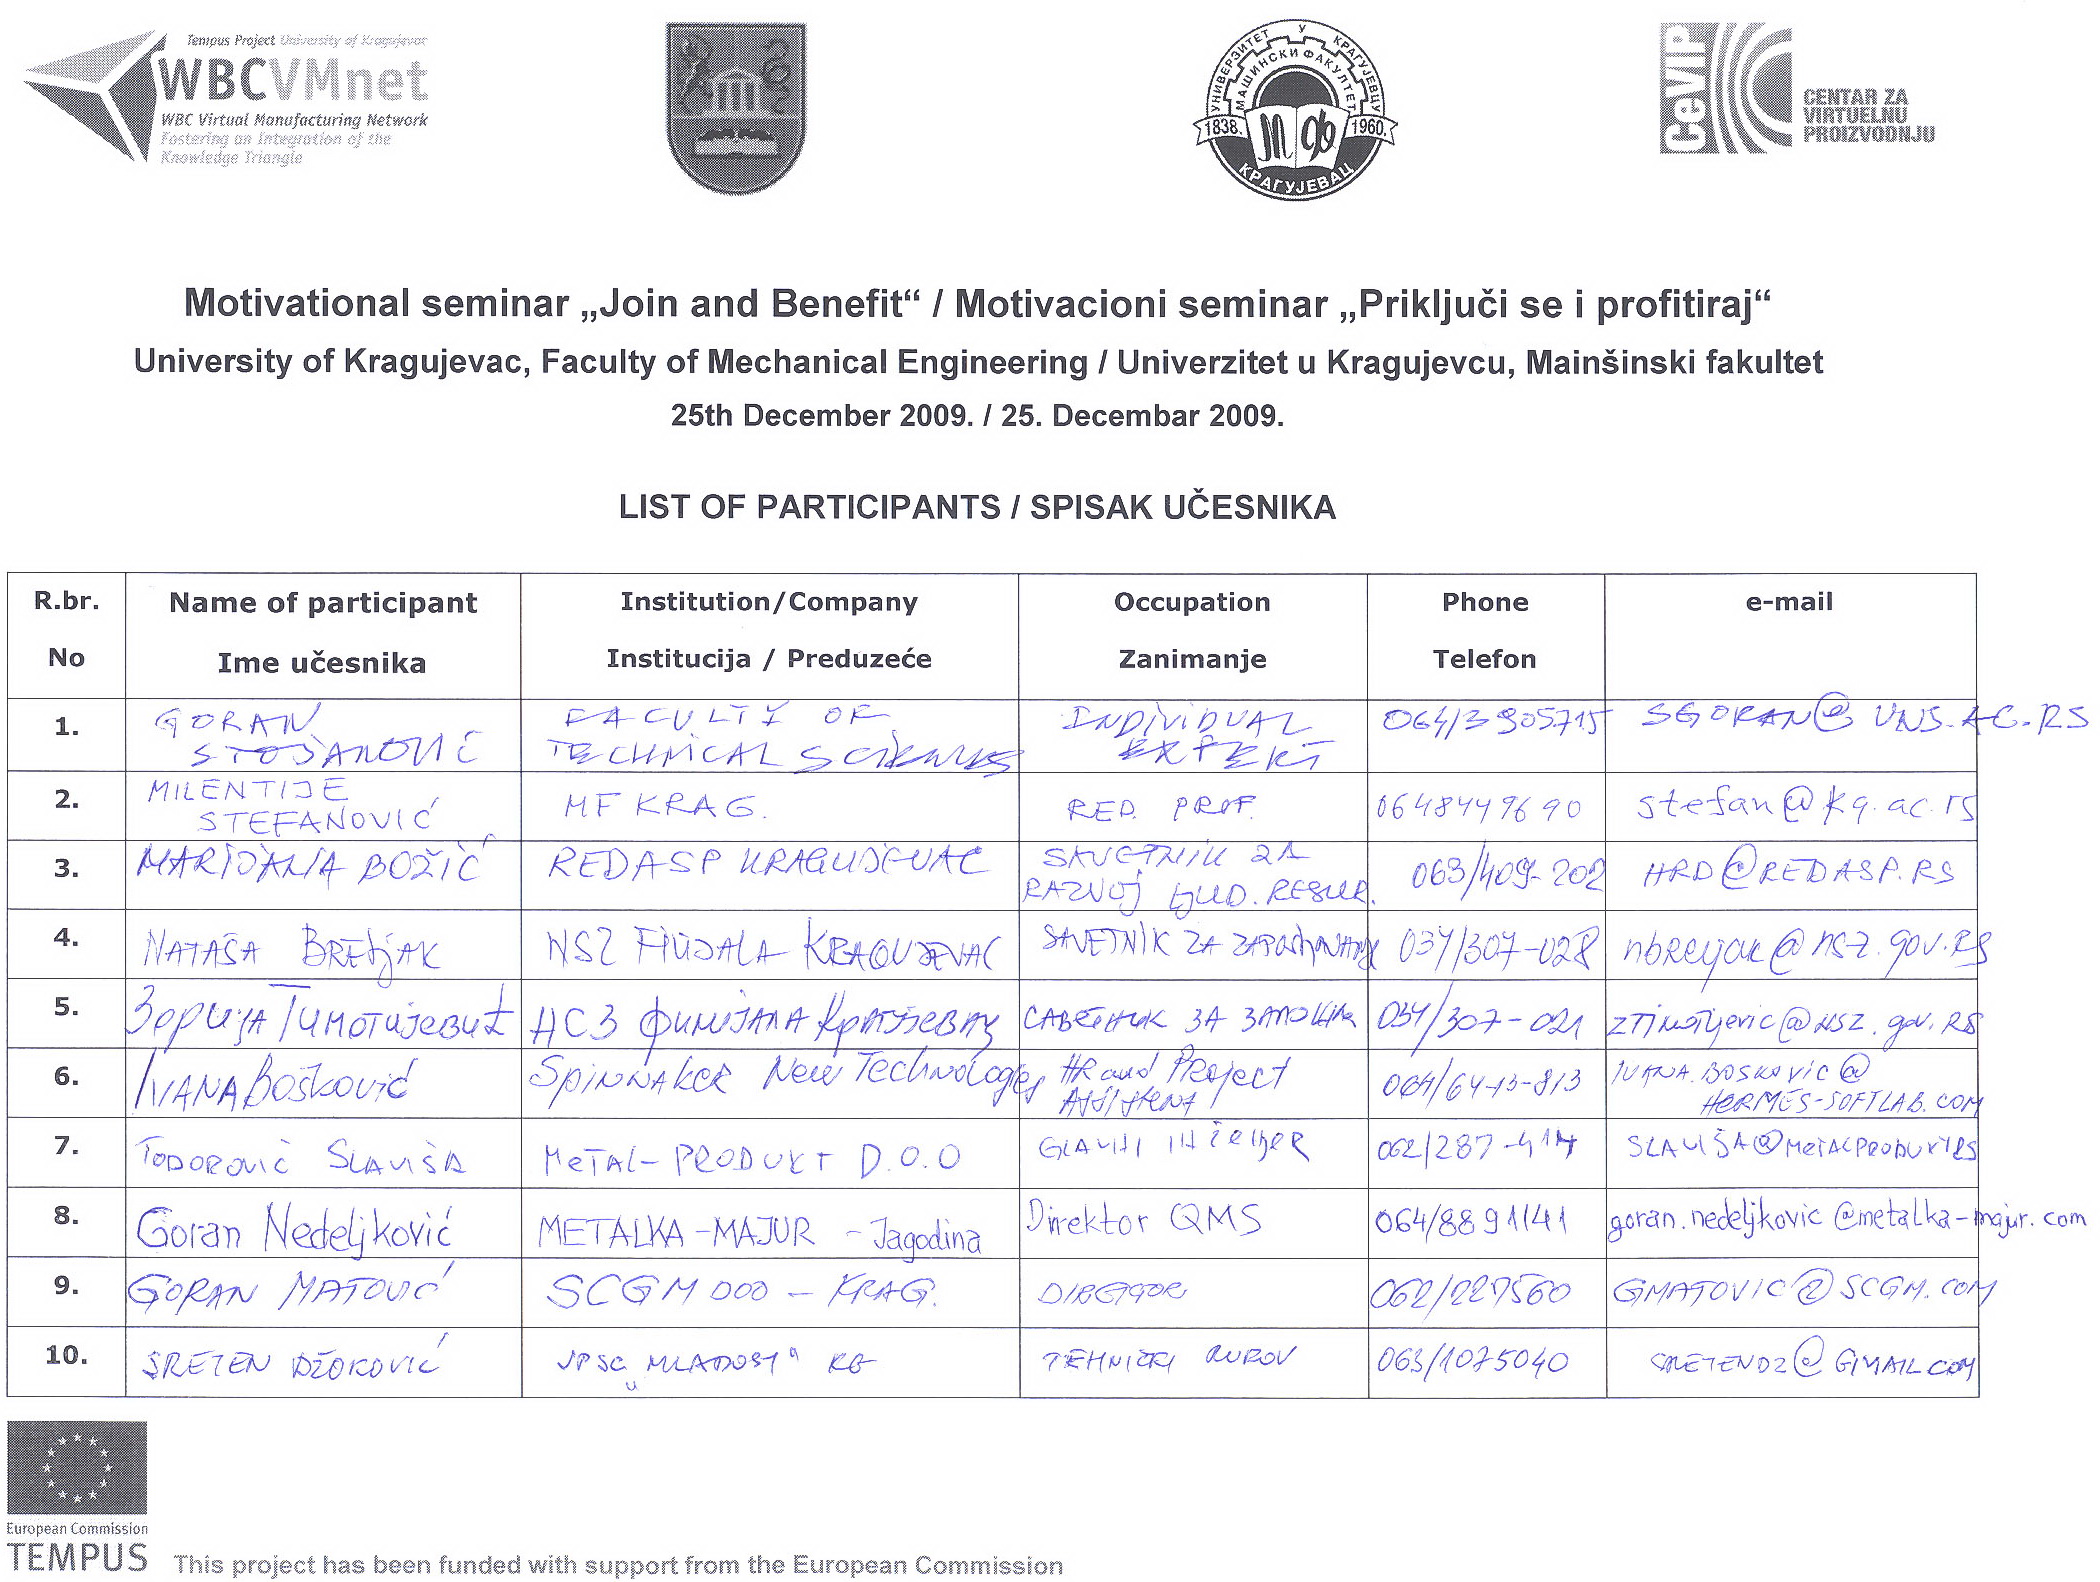 Tempus Project University of Kragujevac
WBCVMnet
WBC Virtual Manufacturing Network
Fostering an Integration of the
Knowledge Triangle
УНИВЕРЗИТЕТ У КРАГУЈЕВЦУ
МАШИНСКИ ФАКУЛТЕТ
1838. 1960.
КРАГУЈЕВАЦ
CeVIP
CENTAR ZA
VIRTUELNU
PROIZVODNJU
Motivational seminar „Join and Benefit“ / Motivacioni seminar „Priključi se i profitiraj“
University of Kragujevac, Faculty of Mechanical Engineering / Univerzitet u Kragujevcu, Mainšinski fakultet
25th December 2009. / 25. Decembar 2009.
LIST OF PARTICIPANTS / SPISAK UČESNIKA
R.br. Name of participant Institution/Company Occupation Phone e-mail
No Ime učesnika Institucija / Preduzeće Zanimanje Telefon
1. GORAN STOJANOVIĆ FACULTY OF TECHNICAL SCIENCES INDIVIDUAL EXPERT 064/3905715 SGORAN@UNS.AC.RS
2. MILENTIJE STEFANOVIĆ MF KRAG. RED. PROF. 0648449690 stefan@kg.ac.rs
3. MARIJANA BOŽIĆ REDASP KRAGUJEVAC SAVETNIK ZA RAZVOJ LJUD. RESUR. 063/409-202 HRD@REDASP.RS
4. NATAŠA BRELJAK NSZ FILIJALA KRAGUJEVAC SAVETNIK ZA 034/307-028
5. Зорица Тимотијевић НСЗ филијала Крагујевац САВЕТНИК ЗА 034/307-021 ztimotijevic@nsz.gov.rs
6. IVANA BOŠKOVIĆ SPINNAKER NEW TECHNOLOGIES HR and Project Assistent IVANA.BOSKOVIC@HERMES-SOFTLAB.COM
7. TODOROVIĆ SLAVIŠA METAL-PRODUKT D.O.O GLAVNI INŽENJER 062/287-414 SLAVIŠA@METALPRODUKT.RS
8. Goran Nedeljković METALKA-MAJUR - Jagodina Direktor QMS 064/8891141 goran.nedeljkovic@metalka-majur.com
9. GORAN MATOVIĆ SCGM DOO - KRAG. DIREKTOR 062/227560 GMATOVIC@SCGM.COM
10. SRETEN DŽOKOVIĆ JPSC „MLADOST" KG TEHNIČKI RUKOV 063/1075040 SRETENDZ@GMAIL.COM
European Commission
TEMPUS
This project has been funded with support from the European Commission